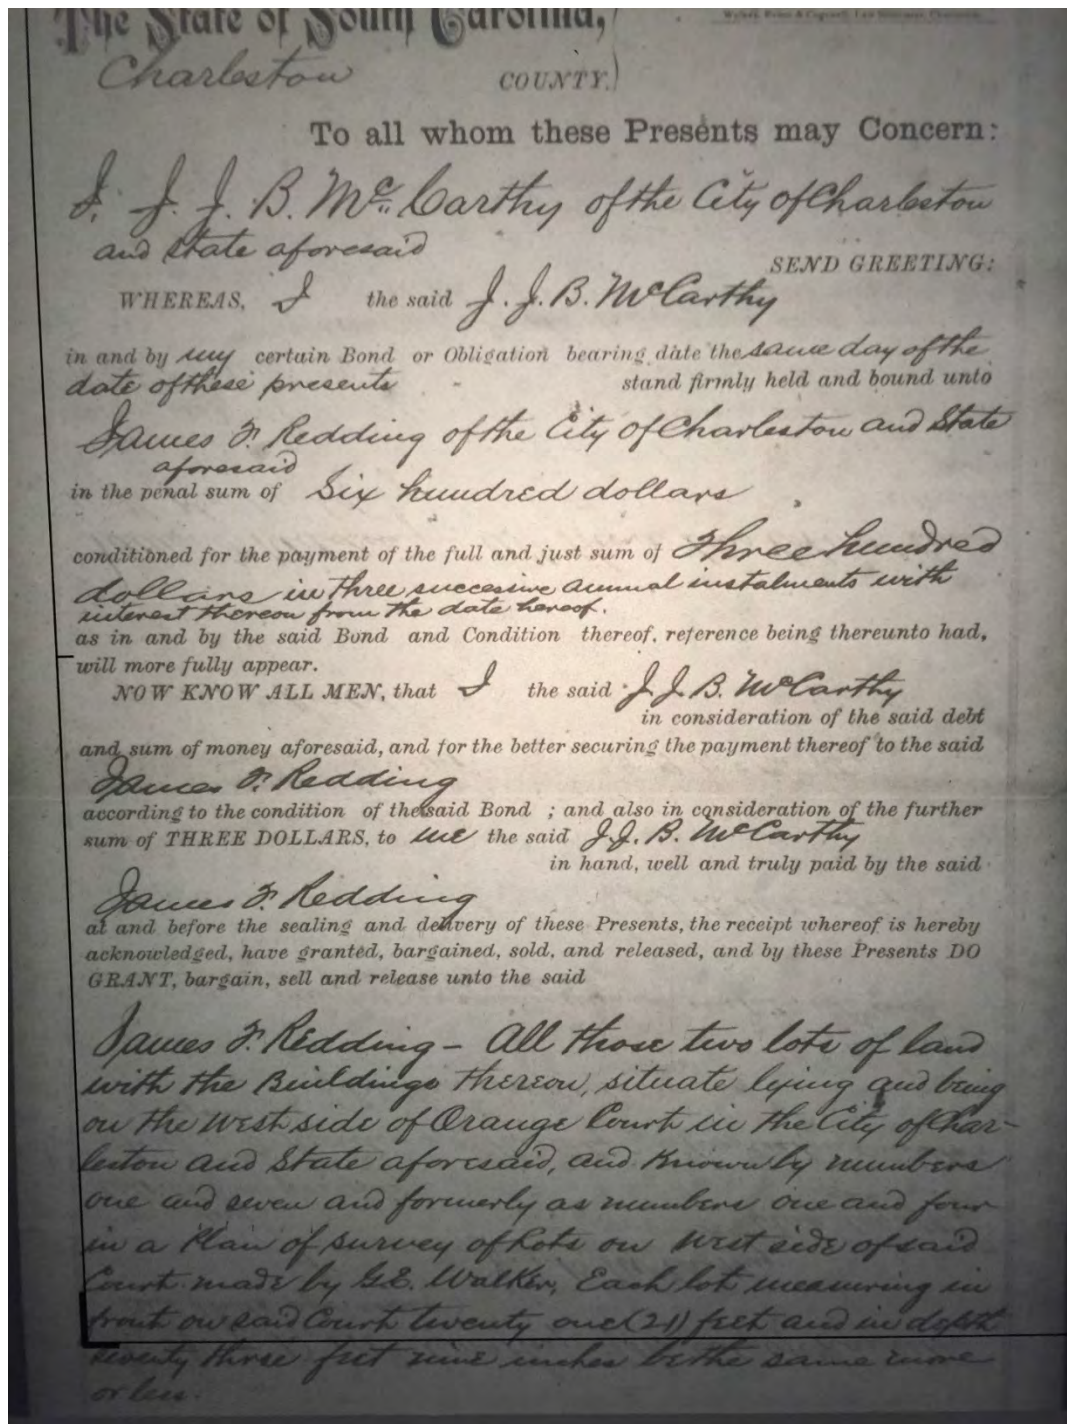 The State of South Carolina,
Charleston COUNTY.)
To all whom these Presents may Concern:
I, J. J. B. McCarthy of the City of Charleston
and State aforesaid
SEND GREETING:
WHEREAS, I the said J. J. B. McCarthy
in and by my certain Bond or Obligation bearing date the same day of the
date of these presents stand firmly held and bound unto
James F. Redding of the City of Charleston and State
aforesaid
in the penal sum of Six hundred dollars
conditioned for the payment of the full and just sum of Three hundred
dollars in three successive annual instalments with
interest thereon from the date hereof.
as in and by the said Bond and Condition thereof, reference being thereunto had,
will more fully appear.
NOW KNOW ALL MEN, that I the said J. J. B. McCarthy
in consideration of the said debt
and sum of money aforesaid, and for the better securing the payment thereof to the said
James F. Redding
according to the condition of the said Bond ; and also in consideration of the further
sum of THREE DOLLARS, to me the said J. J. B. McCarthy
in hand, well and truly paid by the said
James F. Redding
at and before the sealing and delivery of these Presents, the receipt whereof is hereby
acknowledged, have granted, bargained, sold, and released, and by these Presents DO
GRANT, bargain, sell and release unto the said
James F. Redding - All those two lots of land
with the Buildings thereon, situate lying and being
on the West side of Orange Court in the City of Char-
leston and State aforesaid, and known by numbers
one and seven and formerly as numbers one and four
in a Plan of survey of Lots on West side of said
Court made by G.E. Walker, Each lot measuring in
front on said Court twenty one (21) feet and in depth
seventy three feet nine inches be the same more
or less.